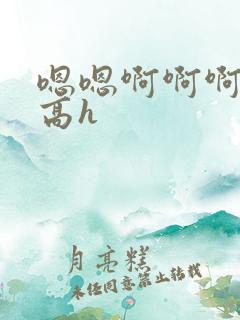 嗯嗯啊啊啊
高h
月亮糕
未经同意禁止转载